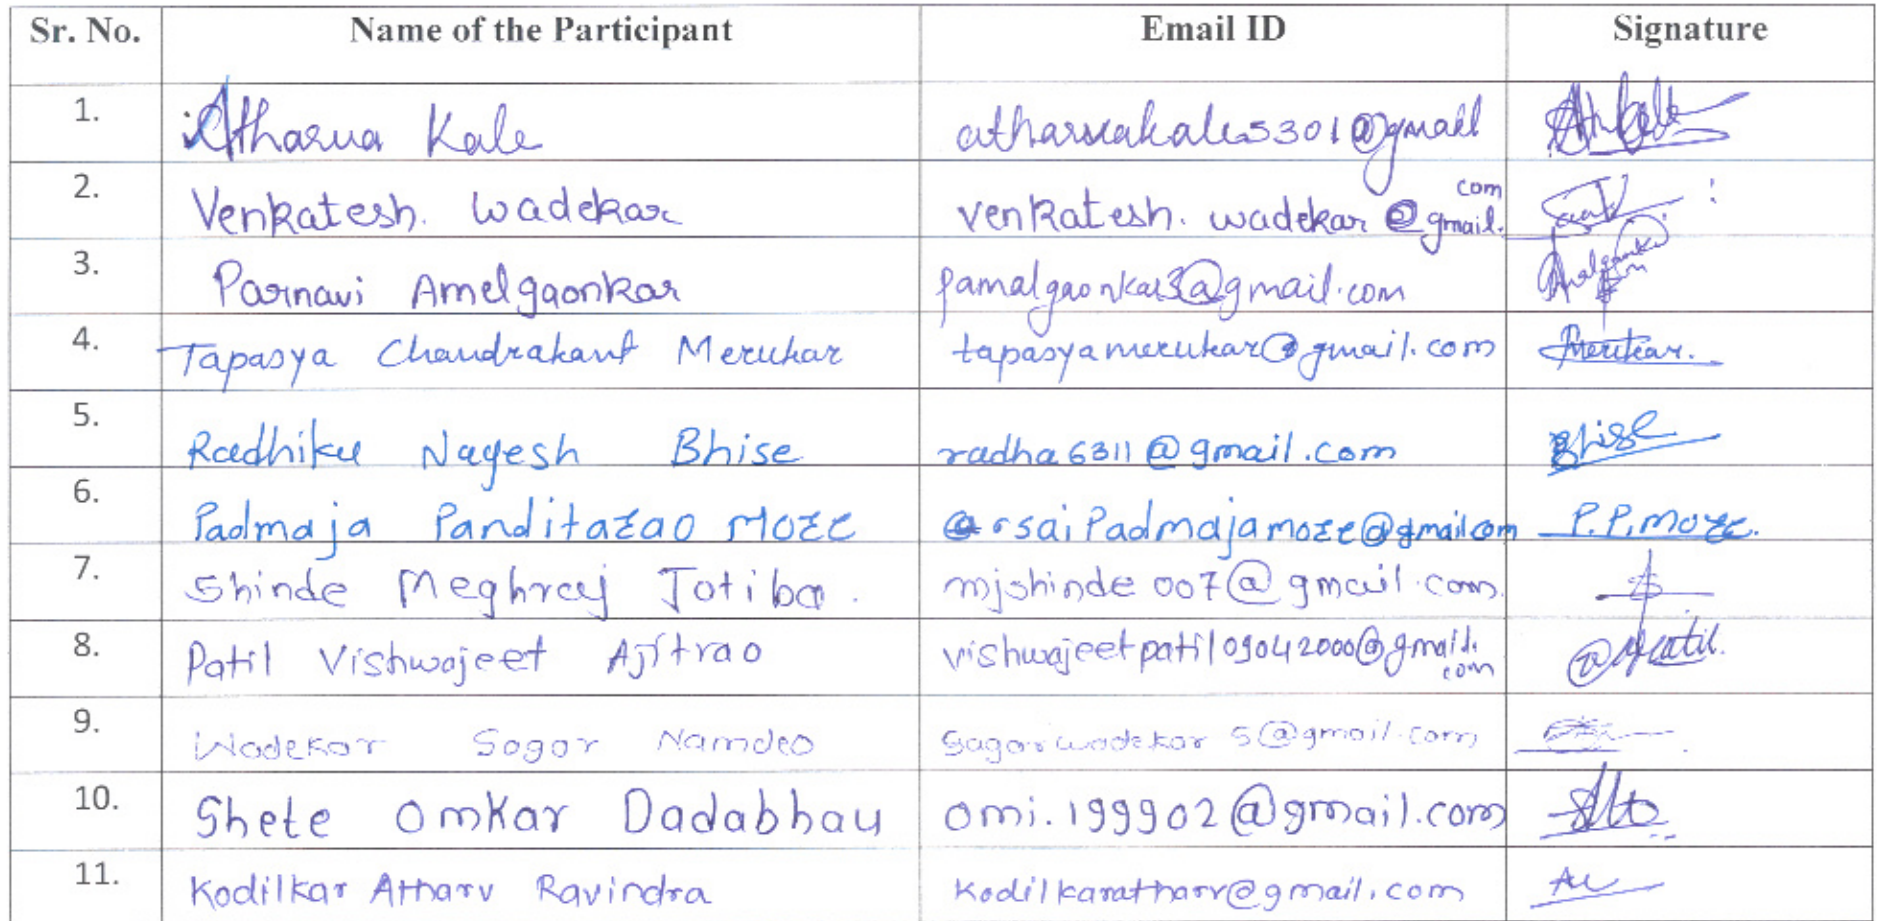 Sr. No. Name of the Participant Email ID Signature
1. Atharva Kale atharvakale5301@gmail
2. Venkatesh. Wadekar venkatesh.wadekar@gmail.com
3. Parnavi Amelgaonkar pamalgaonkar3@gmail.com
4. Tapasya Chandrakant Merukar tapasyamerukar@gmail.com Merukar.
5. Radhika Nagesh Bhise radha6311@gmail.com Bhise
6. Padmaja Panditarao More arsaiPadmajamore@gmail.com P.P.More.
7. Shinde Meghraj Jotiba. mjshinde007@gmail.com
8. Patil Vishwajeet Ajitrao vishwajeetpatil09042000@gmail.com
9. Wadekar Sagar Namdeo Sagarwadekar5@gmail.com
10. Shete Omkar Dadabhau omi.199902@gmail.com
11. Kodilkar Atharv Ravindra Kodilkaratharv@gmail.com